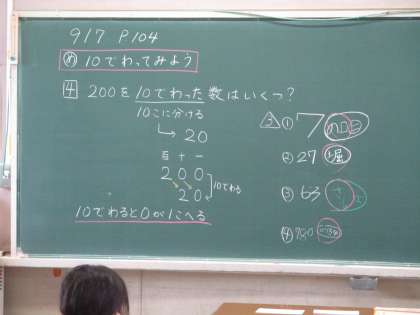 9/7 P104
め 10でわってみよう
4 200を10でわった数はいくつ?
10こに分ける
→20
百 十 一
2 0 0
2 0
10でわる
10でわると0が1こへる
3 ① 7
② 27 堀
③ 63
④ 780